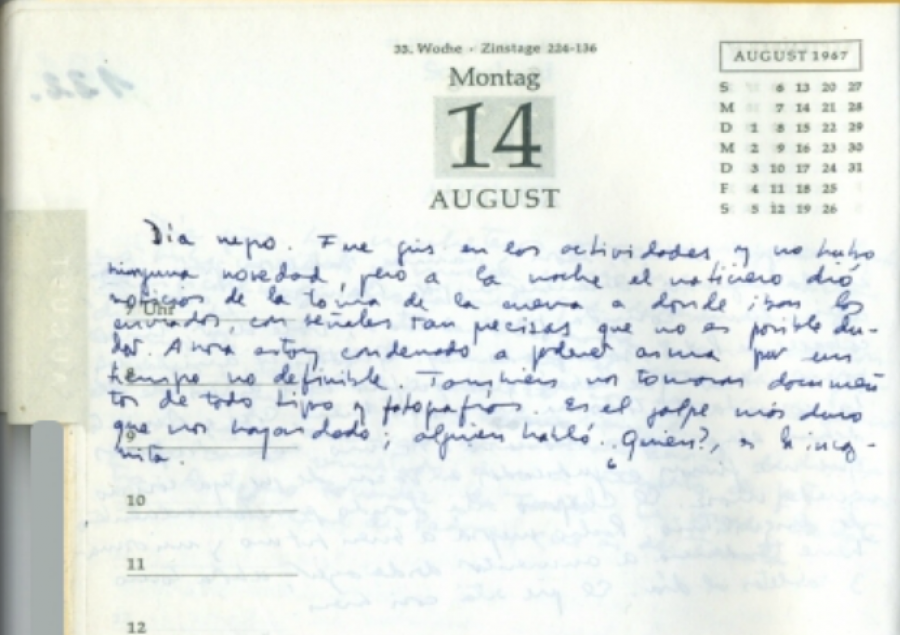 33. Woche - Zinstage 224-136
Montag
14
AUGUST
AUGUST 1967
S 6 13 20 27
M 7 14 21 28
D 1 8 15 22 29
M 2 9 16 23 30
D 3 10 17 24 31
F 4 11 18 25
S 5 12 19 26
Día negro. Fue gris en las actividades y no hubo
ninguna novedad, pero a la noche el noticiero dió
noticias de la toma de la cueva a donde iban los
7 Uhr
enviados, con señales tan precisas que no es posible du-
dar. Ahora estoy condenado a padecer asma por un
8
tiempo no definible. También nos tomaron documen
tos de todo tipo y fotografías. Es el golpe más duro
9
que nos hayan dado; alguien habló. ¿Quién?, es la incóg-
nita.
10
11
12